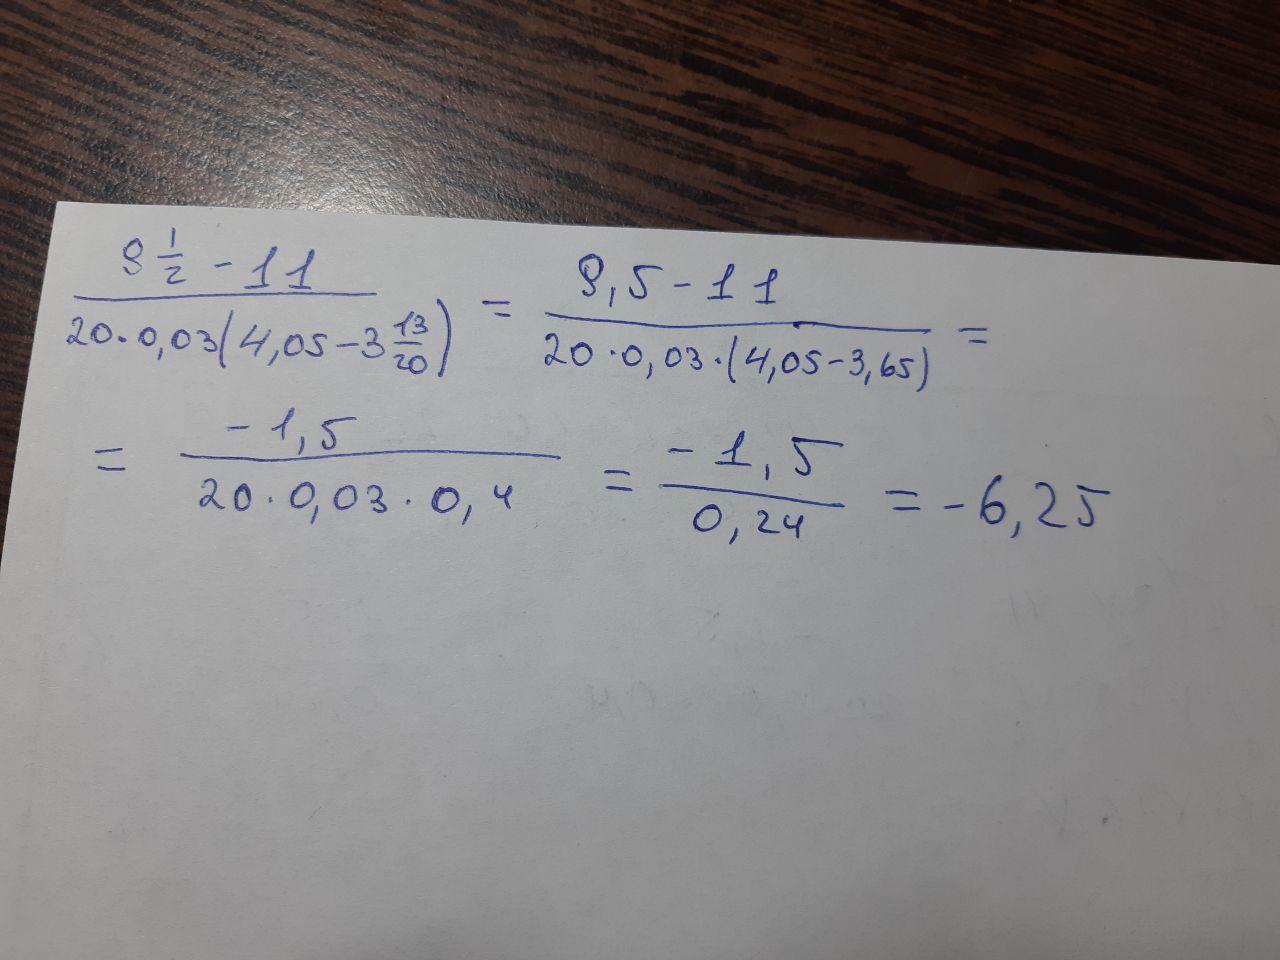 9 1/2 - 11 / 20·0,03(4,05-3 13/20) = 9,5-11 / 20·0,03·(4,05-3,65) =
= -1,5 / 20·0,03·0,4 = -1,5 / 0,24 = -6,25